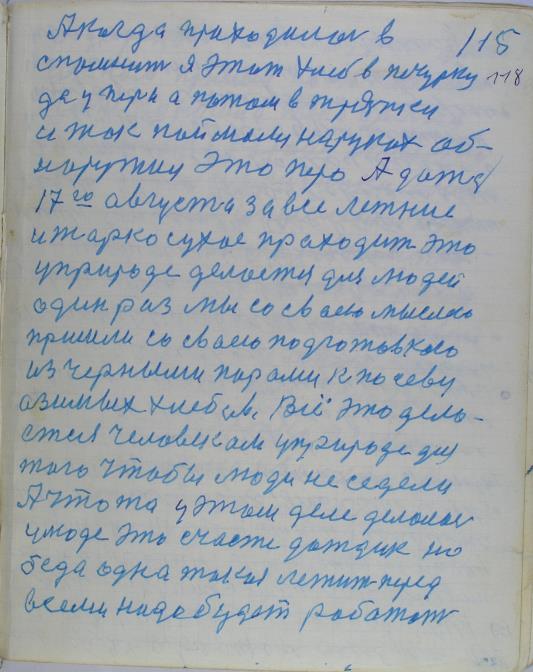 Акогда приходилось в 115
спомнит я этот хлеб в печурку 118
да у пера а потом в тряпки
и так поймали на руках об-
наружил Это перо А дотя
17го августа за все летние
и жарко сухое праходит это
уприроде делаетя для людей
один раз мы со своею мыслею
пришли со своею подготовкаю
из черными парами к посеву
азимых хлебов. Всё это дела-
ется человекам уприроде для
таго чтобы люди не седели
А что та у этом деле делалас
уходе это счасте дождик но
беда одна такая лежит перед
всеми надо будет работат